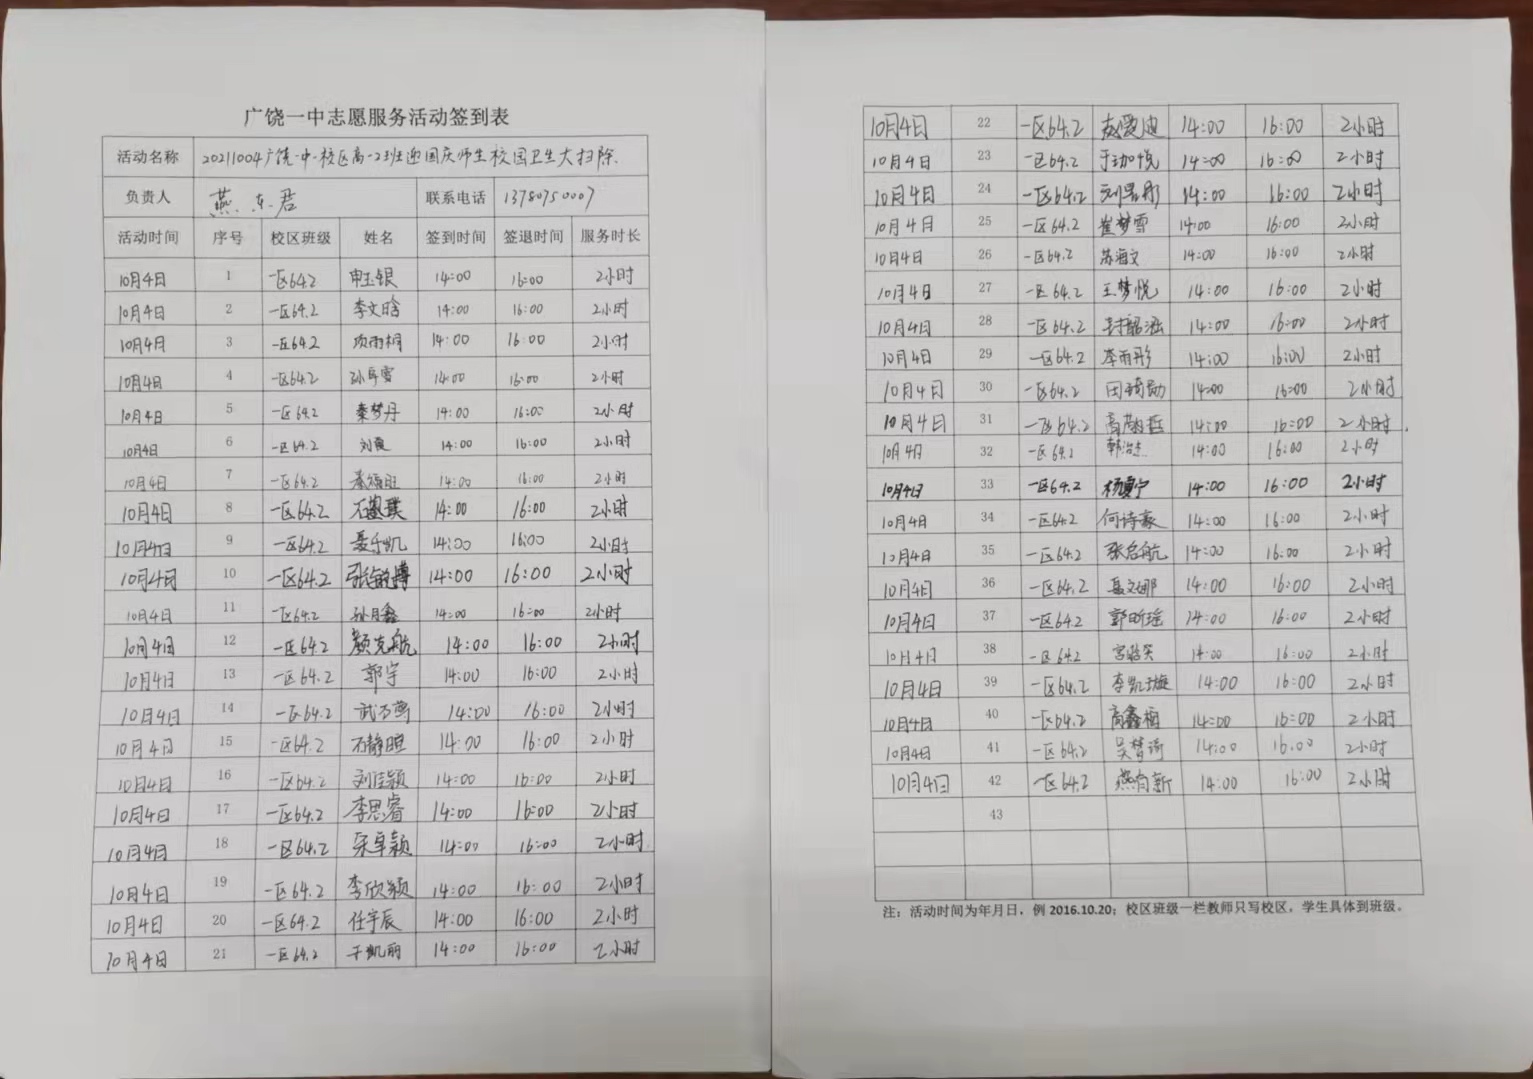 广饶一中志愿服务活动签到表
活动名称 20211004广饶一中一校区高一2班迎国庆师生校园卫生大扫除.
负责人 燕东君 联系电话 13780750007
活动时间 序号 校区班级 姓名 签到时间 签退时间 服务时长
10月4日 1 一区64.2 申玉银 14:00 16:00 2小时
10月4日 2 一区64.2 李文晗 14:00 16:00 2小时
10月4日 3 一区64.2 项雨桐 14:00 16:00 2小时
10月4日 4 一区64.2 14:00 16:00 2小时
10月4日 5 一区64.2 秦梦丹 14:00 16:00 2小时
10月4日 6 一区64.2 刘霞 14:00 16:00 2小时
10月4日 7 一区64.2 14:00 16:00 2小时
10月4日 8 一区64.2 14:00 16:00 2小时
10月4日 9 一区64.2 聂乐凯 14:00 16:00 2小时
10月4日 10 一区64.2 14:00 16:00 2小时
10月4日 11 一区64.2 孙月鑫 14:00 16:00 2小时
10月4日 12 一区64.2 颜克航 14:00 16:00 2小时
10月4日 13 一区64.2 郭宇 14:00 16:00 2小时
10月4日 14 一区64.2 14:00 16:00 2小时
10月4日 15 一区64.2 石静暄 14:00 16:00 2小时
10月4日 16 一区64.2 刘佳颖 14:00 16:00 2小时
10月4日 17 一区64.2 李思睿 14:00 16:00 2小时
10月4日 18 一区64.2 宋卓颖 14:00 16:00 2小时
10月4日 19 一区64.2 李欣颖 14:00 16:00 2小时
10月4日 20 一区64.2 任宇辰 14:00 16:00 2小时
10月4日 21 一区64.2 于凯丽 14:00 16:00 2小时
10月4日 22 一区64.2 赵爱迪 14:00 16:00 2小时
10月4日 23 一区64.2 于珈悦 14:00 16:00 2小时
10月4日 24 一区64.2 14:00 16:00 2小时
10月4日 25 一区64.2 崔梦雪 14:00 16:00 2小时
10月4日 26 一区64.2 苏海文 14:00 16:00 2小时
10月4日 27 一区64.2 王梦悦 14:00 16:00 2小时
10月4日 28 一区64.2 封韶涵 14:00 16:00 2小时
10月4日 29 一区64.2 李雨彤 14:00 16:00 2小时
10月4日 30 一区64.2 田琦勋 14:00 16:00 2小时
10月4日 31 一区64.2 14:00 16:00 2小时.
10月4日 32 一区64.2 14:00 16:00 2小时
10月4日 33 一区64.2 杨夏宁 14:00 16:00 2小时
10月4日 34 一区64.2 何诗豪 14:00 16:00 2小时
10月4日 35 一区64.2 张启航 14:00 16:00 2小时
10月4日 36 一区64.2 聂文娜 14:00 16:00 2小时
10月4日 37 一区64.2 郭昕瑶 14:00 16:00 2小时
10月4日 38 一区64.2 14:00 16:00 2小时
10月4日 39 一区64.2 李凯璇 14:00 16:00 2小时
10月4日 40 一区64.2 高鑫梅 14:00 16:00 2小时
10月4日 41 一区64.2 吴梦琦 14:00 16:00 2小时
10月4日 42 一区64.2 燕有新 14:00 16:00 2小时
43
注：活动时间为年月日，例 2016.10.20；校区班级一栏教师只写校区，学生具体到班级。